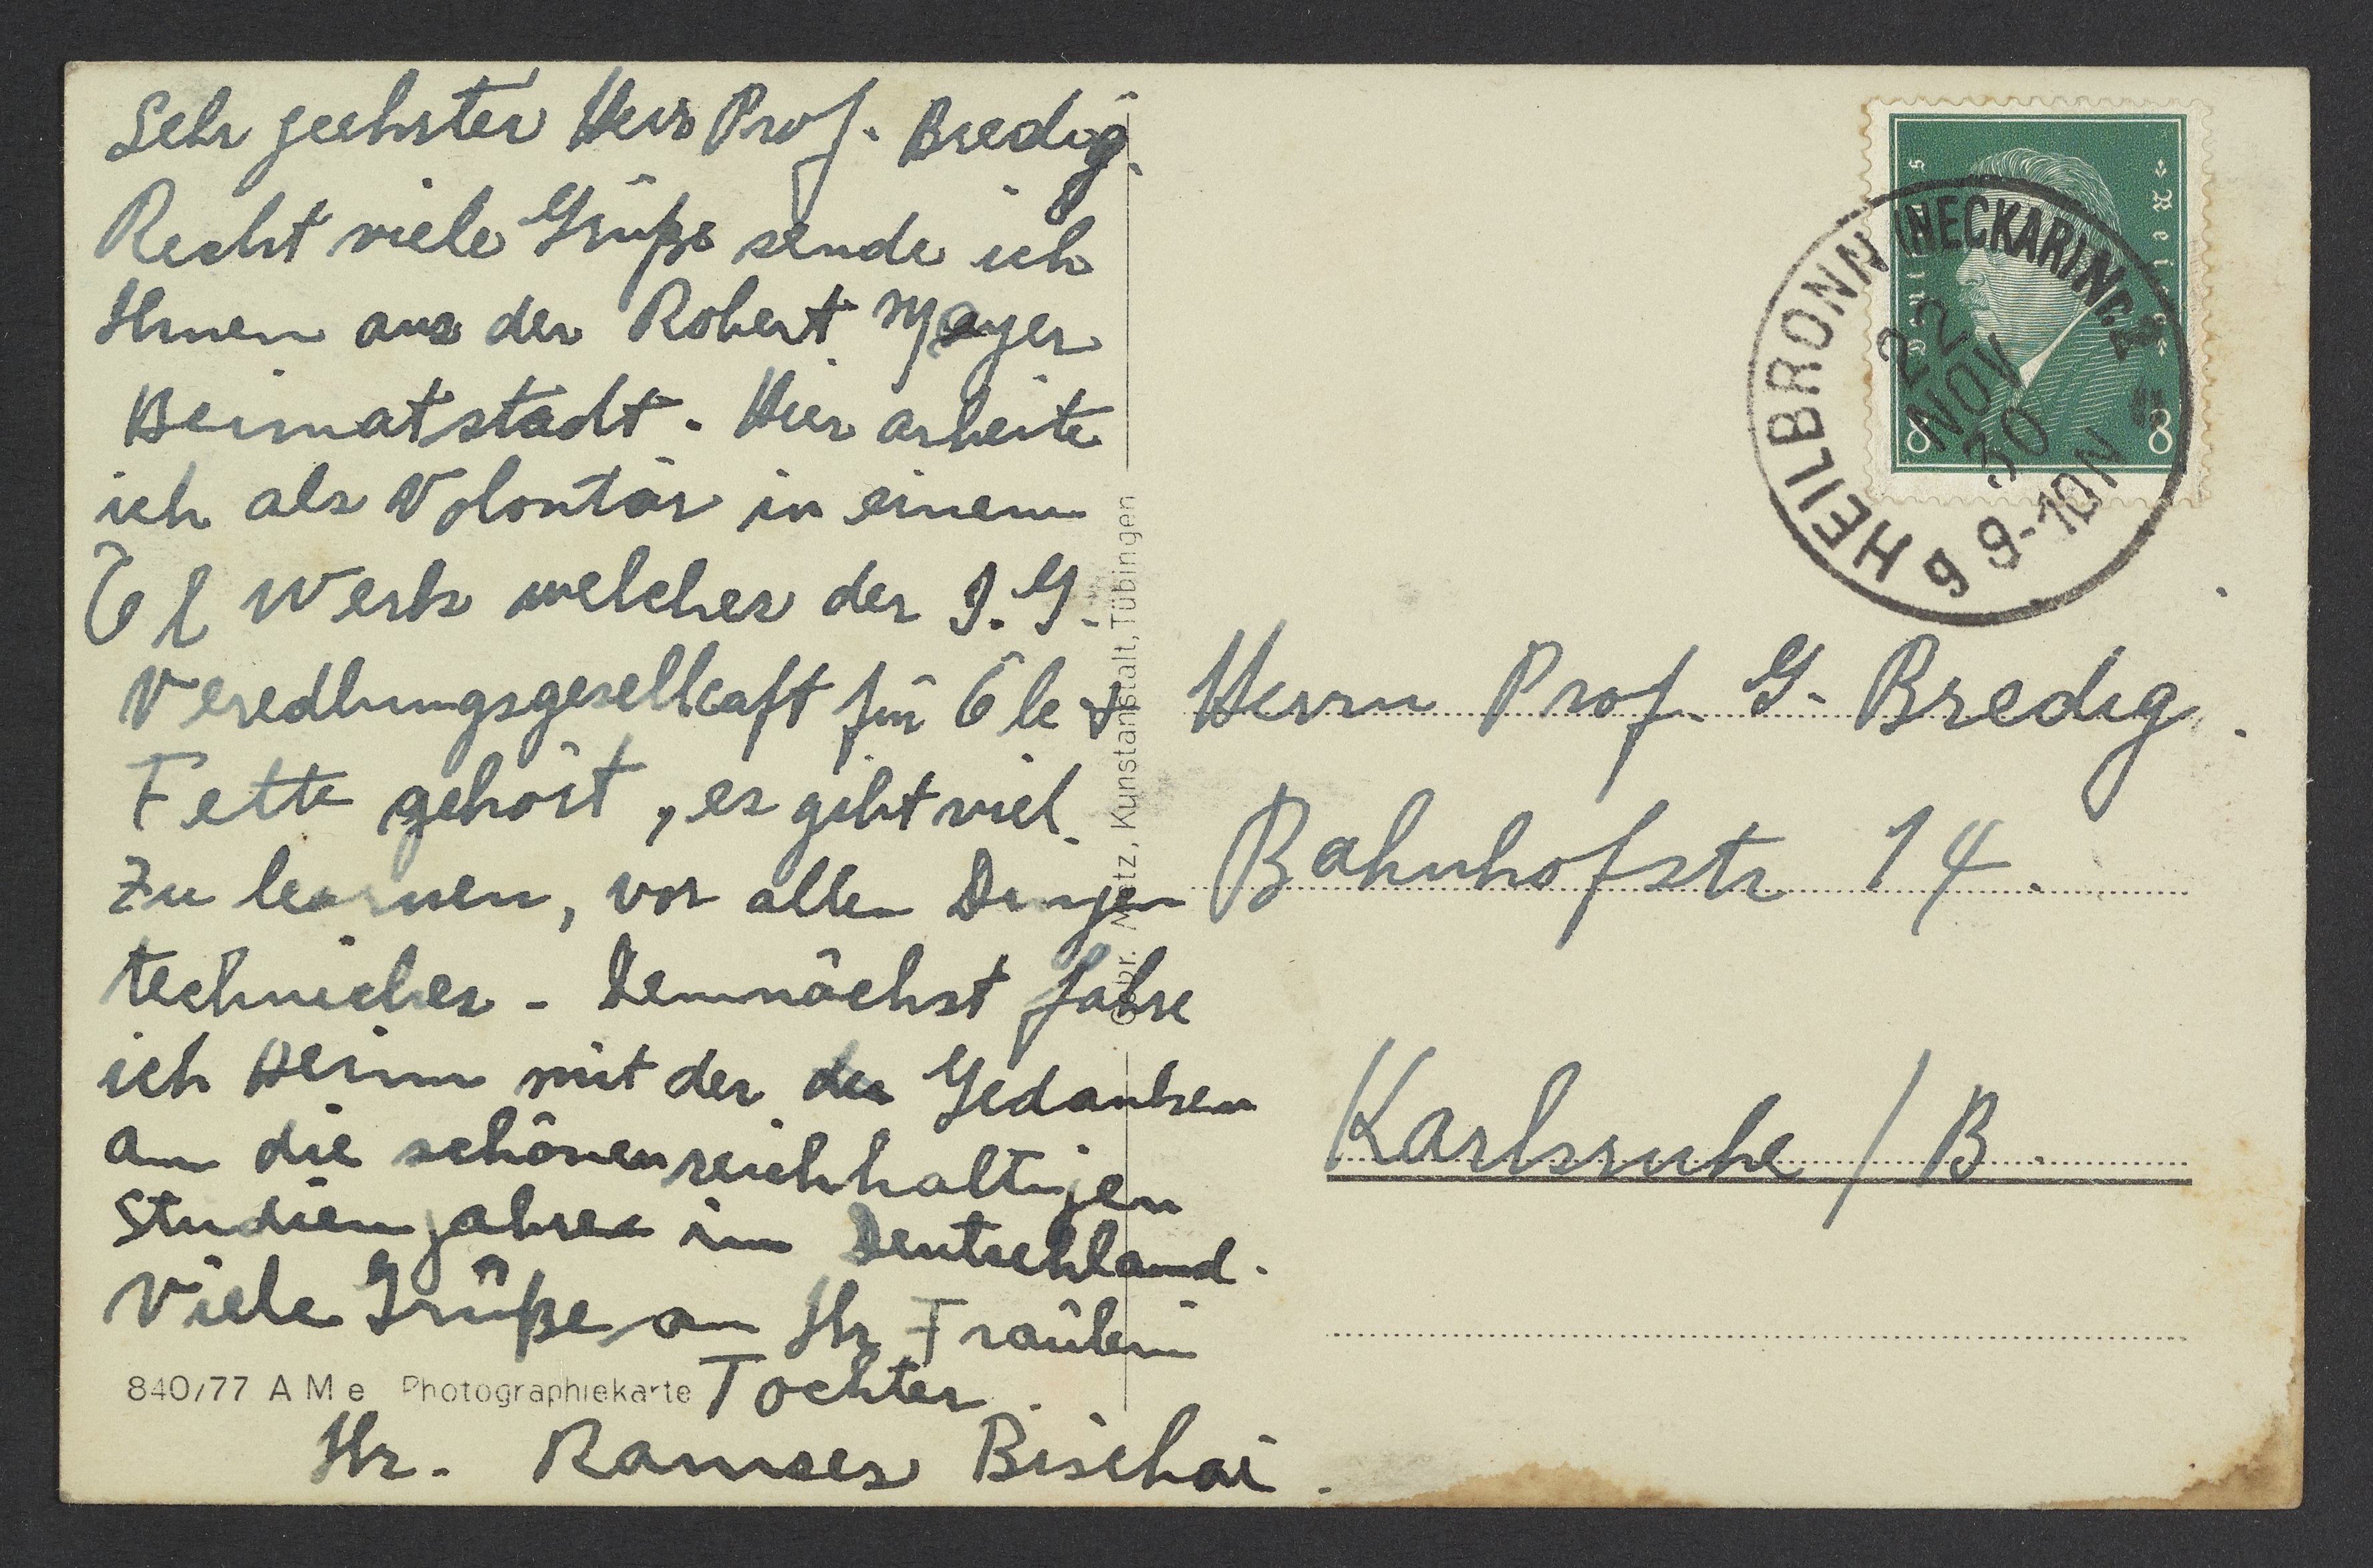 Sehr geehrter Herr Prof. Bredig.
Recht viele Grüße sende ich
Ihnen aus der Robert Mayer
Heimatstadt. Hier arbeite
ich als Volontär in einem
Öl Werk welches der I.G.
Veredlungsgesellcaft für Öle &
Fette gehört, es gibt viel
zu learnen, vor allen Dingen
techniches - Demnächst fahre
ich Heim mit der der Gedanken
an die schönen reichhaltigen
Studienjahres im Deutschland.
Viele Grüße an Ihr Fräulein
Tochter
Ihr. Ramses Bischai.
840/77 A M e Photographiekarte
Gebr. Metz, Kunstanstalt, Tübingen
HEILBRONN (NECKAR) Nr. 2
22
NOV
30
9-10 N
g
8 8
Herrn Prof. G. Bredig.
Bahnhofstr 14.
Karlsruhe / B.